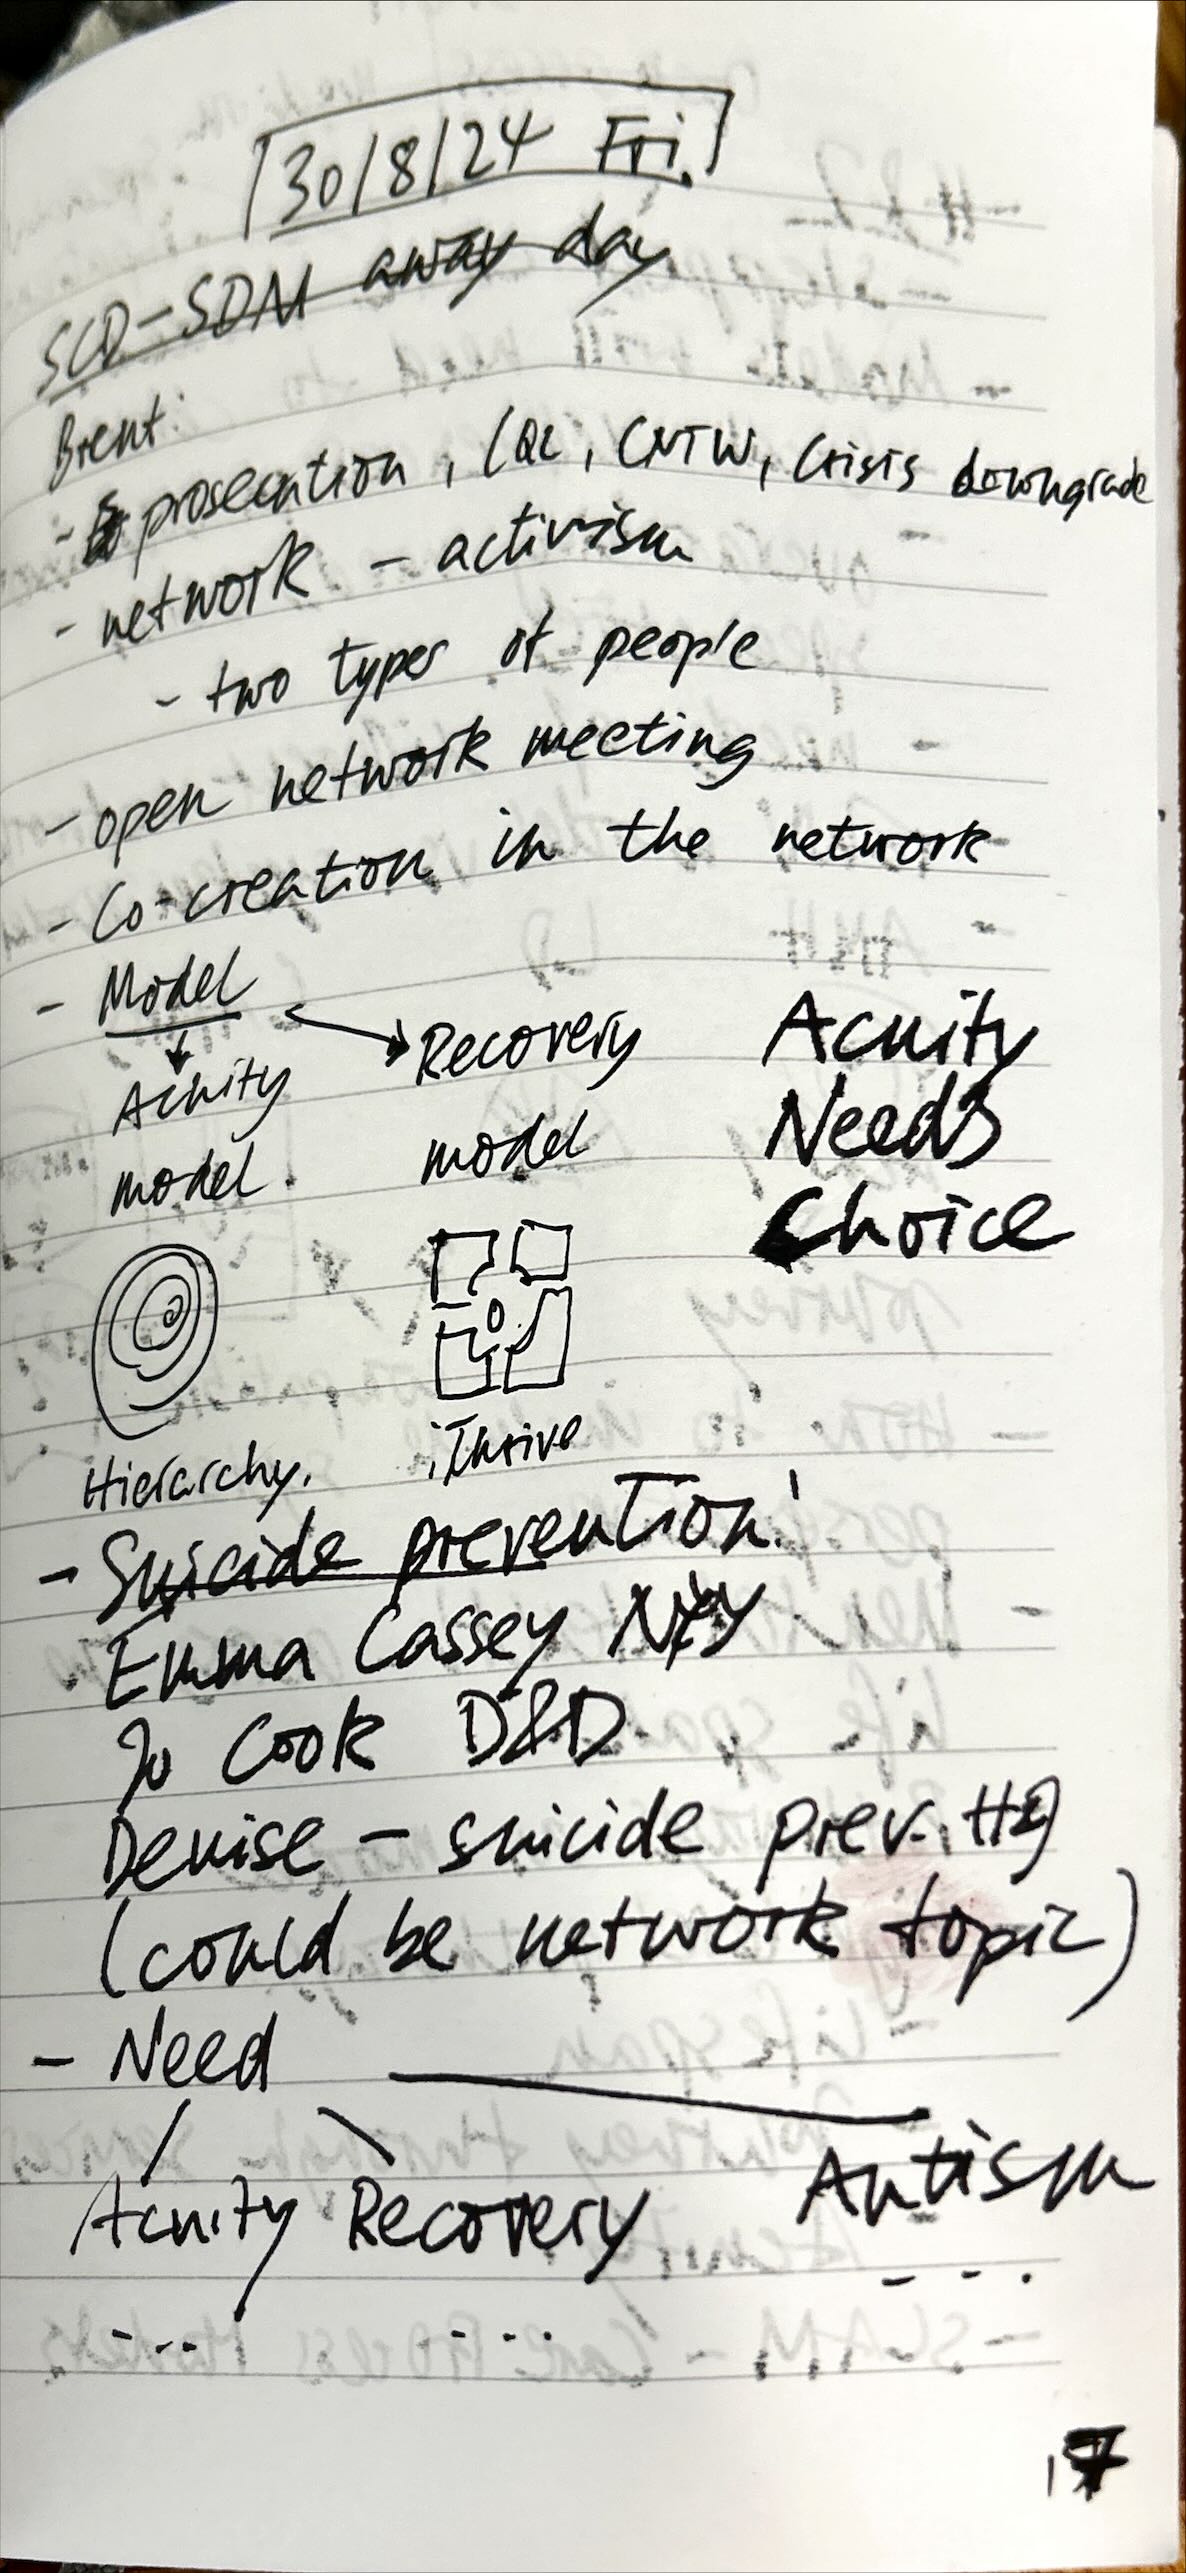 30/8/24 Fri.
SCD-SDM away day
Brent:
- prosecution, CQC, CNTW, Crisis downgrade
- network - activism
- two types of people
- open network meeting
- Co-creation in the network
- Model
Acuity model.
Recovery model
Acuity
Needs
Choice
Hierarchy.
iThrive
- Suicide prevention!
Emma Cassey NYY
Jo Cook D&D
Denise - suicide prev.
(could be network topic)
- Need
Acuity Recovery Autism
... ... ...
17